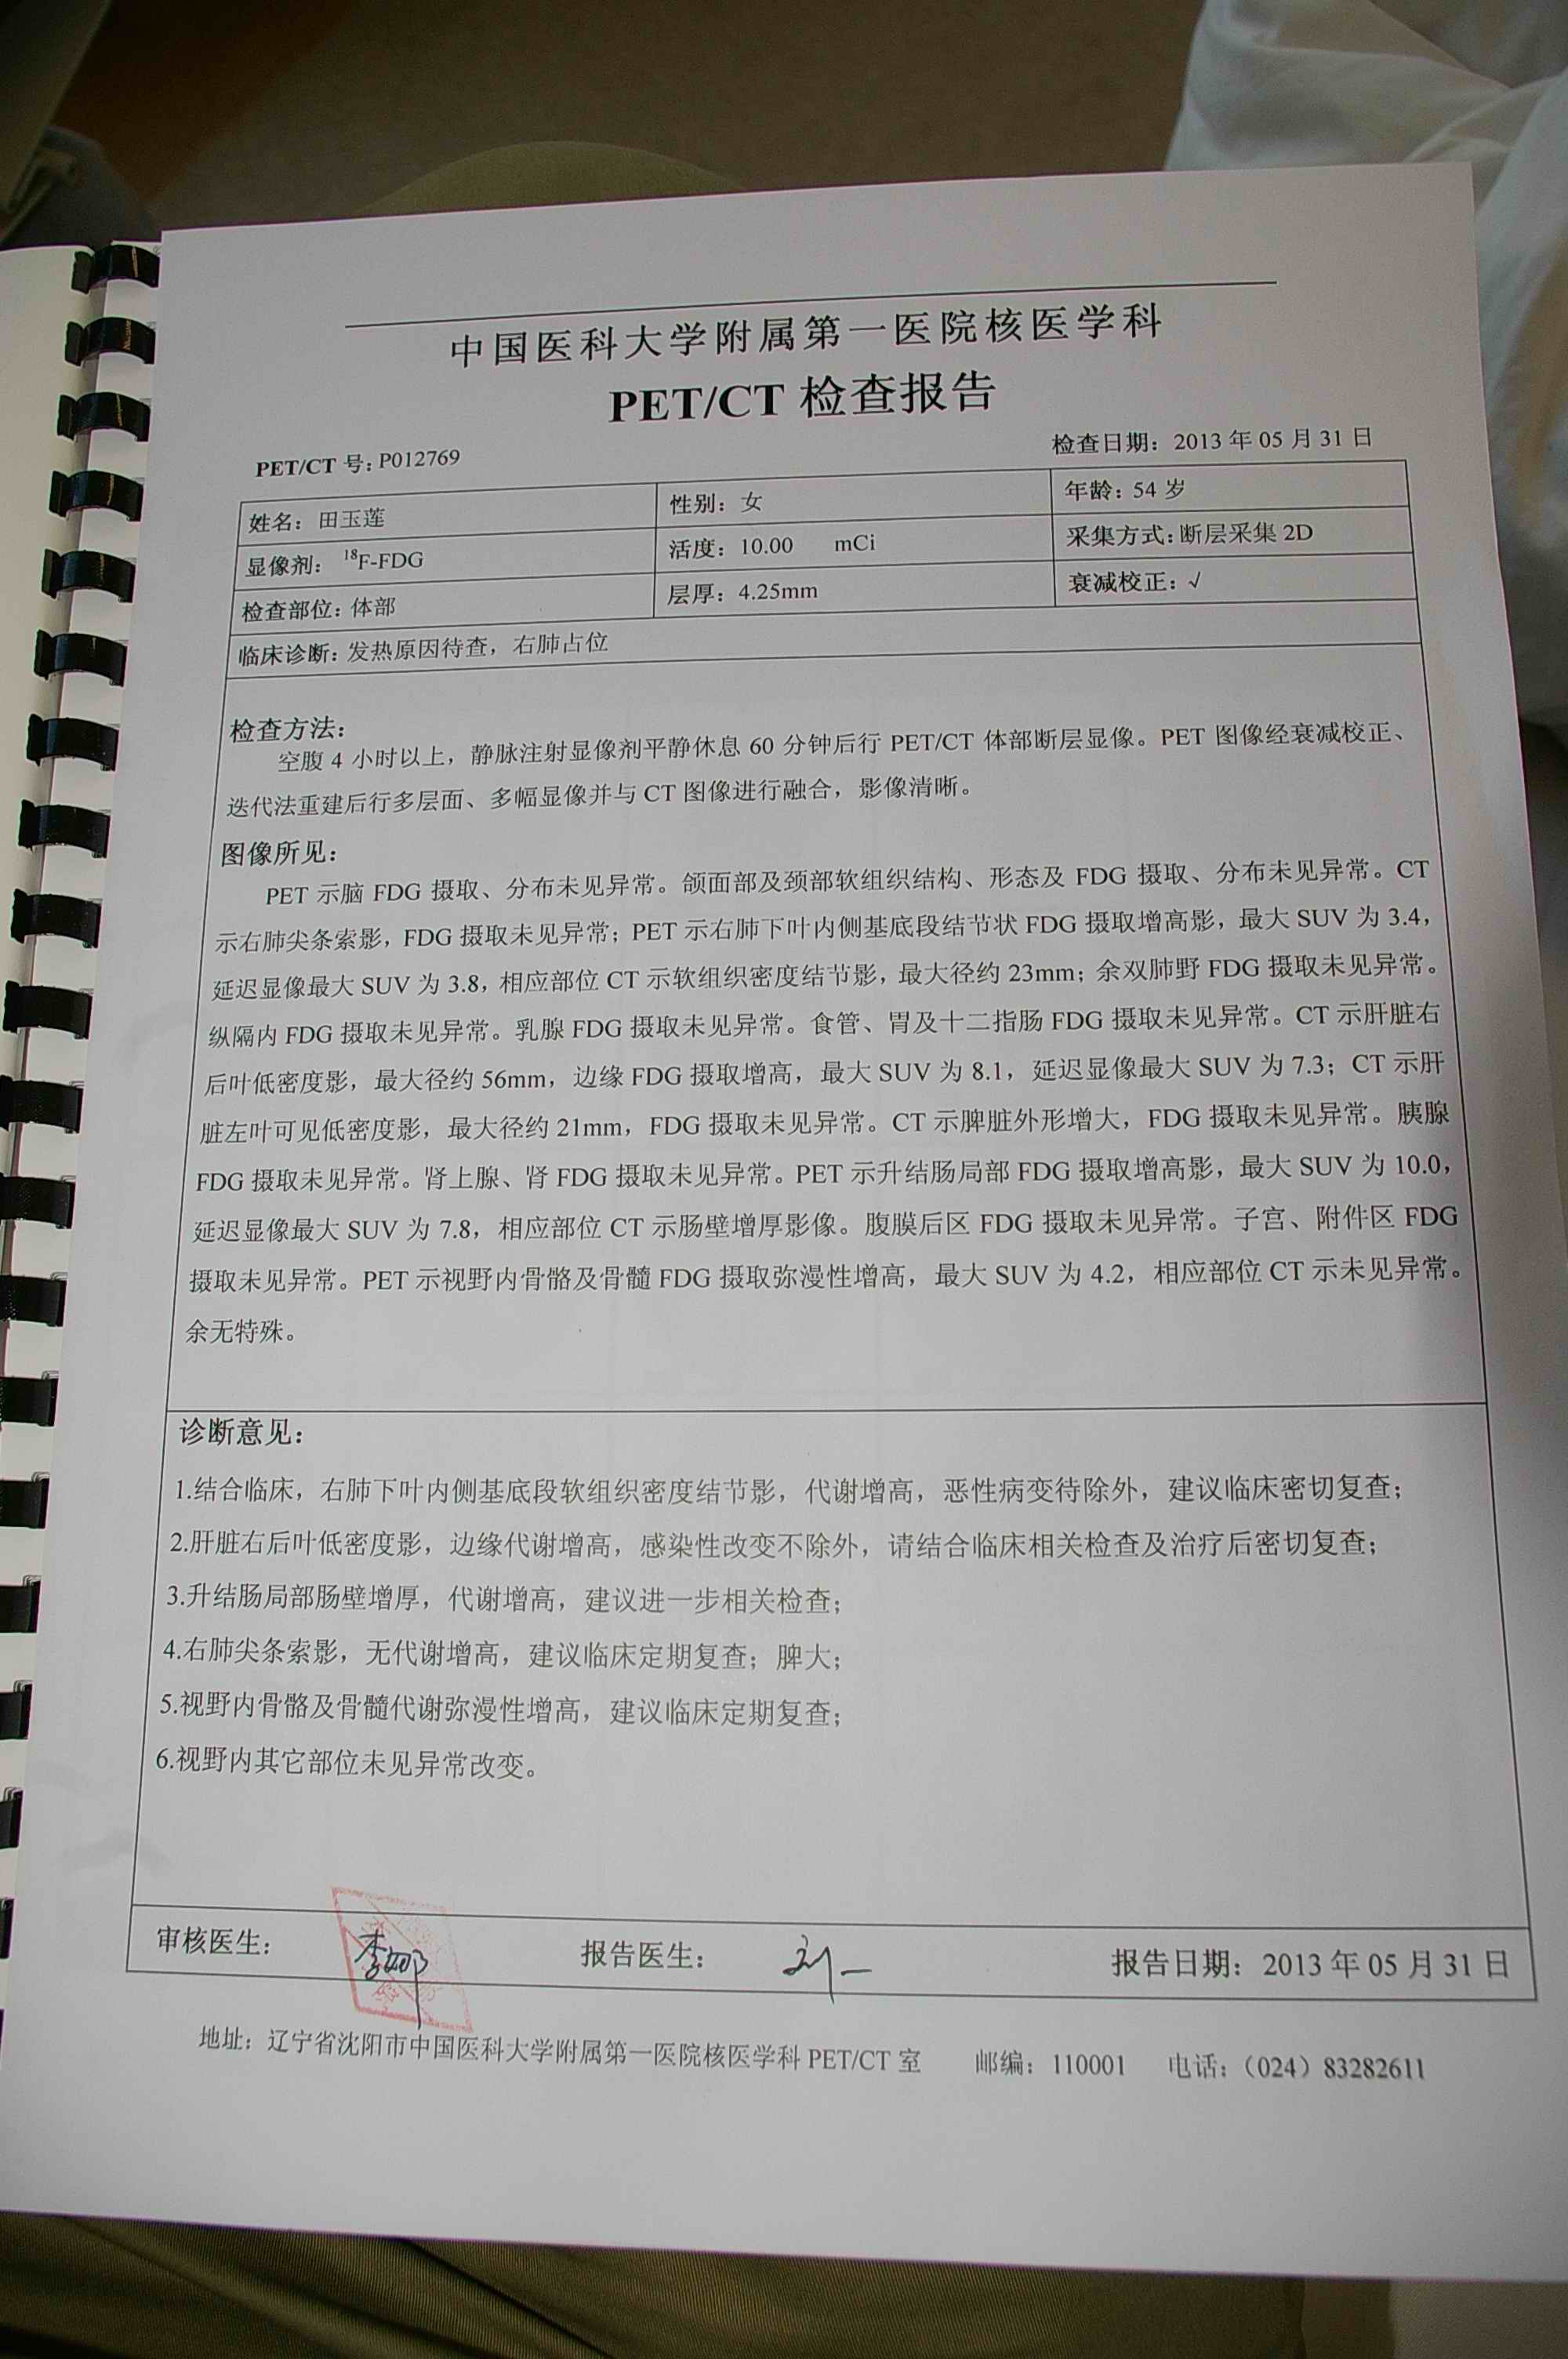 中国医科大学附属第一医院核医学科
PET/CT 检查报告
PET/CT 号: P012769 检查日期：2013 年 05 月 31 日
姓名：田玉莲 性别：女 年龄：54 岁
显像剂： ¹⁸F-FDG 活度：10.00 mCi 采集方式：断层采集 2D
检查部位：体部 层厚：4.25mm 衰减校正：√
临床诊断：发热原因待查，右肺占位
检查方法：
空腹 4 小时以上，静脉注射显像剂平静休息 60 分钟后行 PET/CT 体部断层显像。PET 图像经衰减校正、
迭代法重建后行多层面、多幅显像并与 CT 图像进行融合，影像清晰。
图像所见：
PET 示脑 FDG 摄取、分布未见异常。颌面部及颈部软组织结构、形态及 FDG 摄取、分布未见异常。CT
示右肺尖条索影，FDG 摄取未见异常；PET 示右肺下叶内侧基底段结节状 FDG 摄取增高影，最大 SUV 为 3.4，
延迟显像最大 SUV 为 3.8，相应部位 CT 示软组织密度结节影，最大径约 23mm；余双肺野 FDG 摄取未见异常。
纵隔内 FDG 摄取未见异常。乳腺 FDG 摄取未见异常。食管、胃及十二指肠 FDG 摄取未见异常。CT 示肝脏右
后叶低密度影，最大径约 56mm，边缘 FDG 摄取增高，最大 SUV 为 8.1，延迟显像最大 SUV 为 7.3；CT 示肝
脏左叶可见低密度影，最大径约 21mm，FDG 摄取未见异常。CT 示脾脏外形增大，FDG 摄取未见异常。胰腺
FDG 摄取未见异常。肾上腺、肾 FDG 摄取未见异常。PET 示升结肠局部 FDG 摄取增高影，最大 SUV 为 10.0，
延迟显像最大 SUV 为 7.8，相应部位 CT 示肠壁增厚影像。腹膜后区 FDG 摄取未见异常。子宫、附件区 FDG
摄取未见异常。PET 示视野内骨骼及骨髓 FDG 摄取弥漫性增高，最大 SUV 为 4.2，相应部位 CT 示未见异常。
余无特殊。
诊断意见：
1.结合临床，右肺下叶内侧基底段软组织密度结节影，代谢增高，恶性病变待除外，建议临床密切复查；
2.肝脏右后叶低密度影，边缘代谢增高，感染性改变不除外，请结合临床相关检查及治疗后密切复查；
3.升结肠局部肠壁增厚，代谢增高，建议进一步相关检查；
4.右肺尖条索影，无代谢增高，建议临床定期复查；脾大；
5.视野内骨骼及骨髓代谢弥漫性增高，建议临床定期复查；
6.视野内其它部位未见异常改变。
审核医生： 报告医生： 报告日期：2013 年 05 月 31 日
地址：辽宁省沈阳市中国医科大学附属第一医院核医学科 PET/CT 室 邮编：110001 电话：（024）83282611